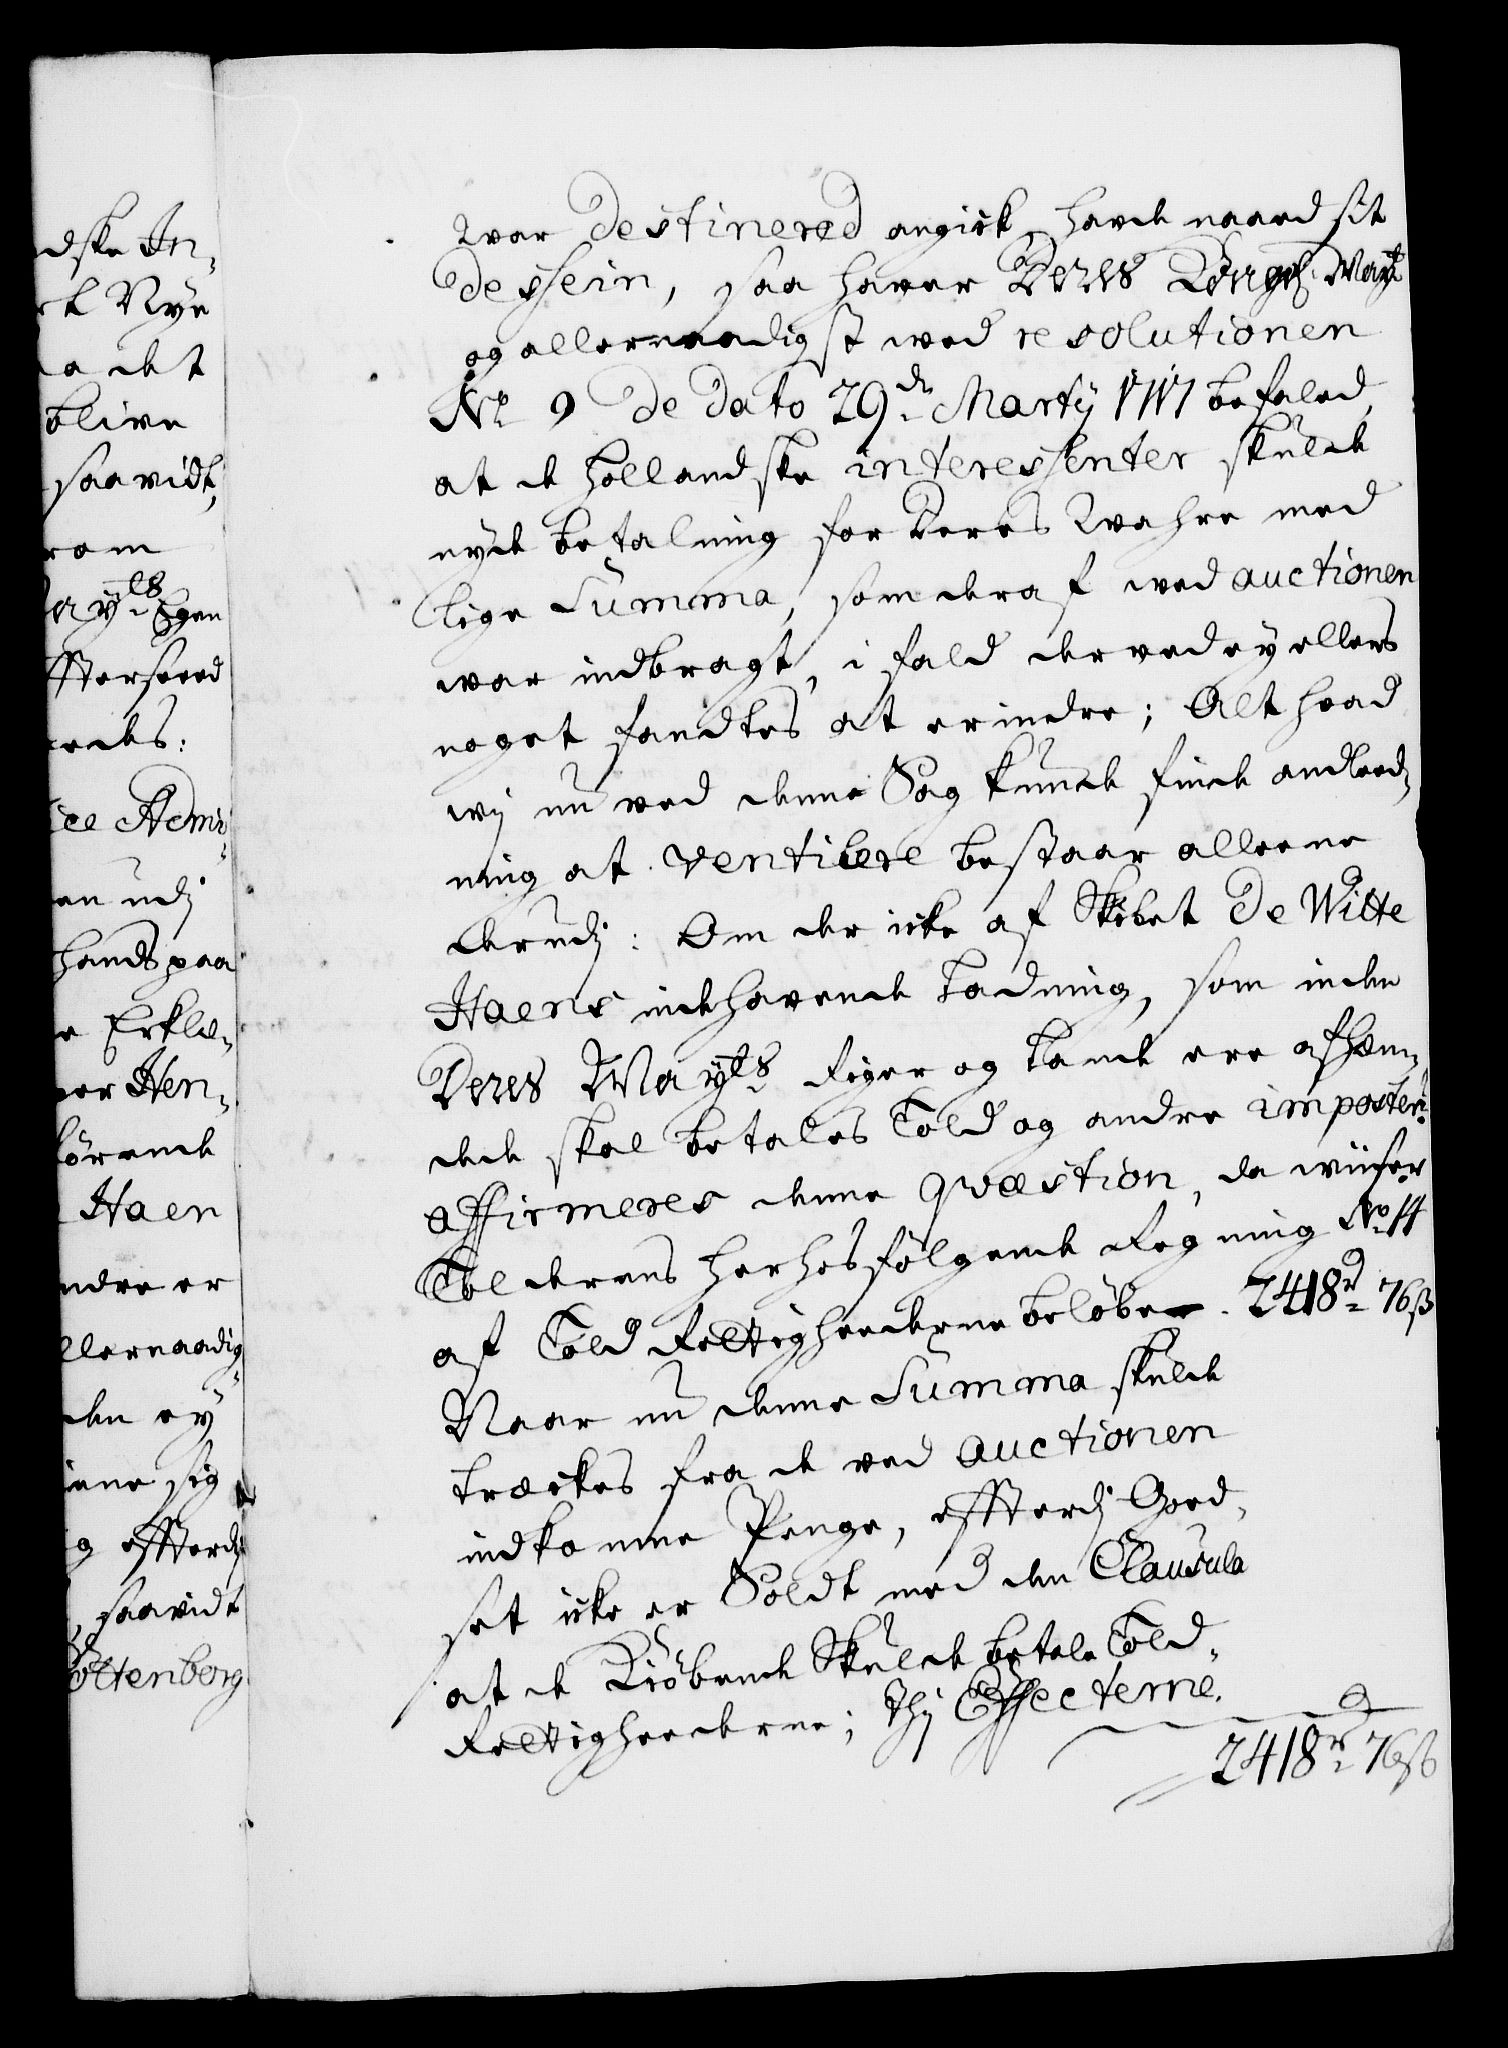 dske In-
rk Nye
a det
blive
saavidt,
rom
ayts Egen
ffterseed
eedes:
ice Admi-
en udj
hands paa
e Erklæ-
er Hen-
hørende
Haen
ndre er
llernaadig-
den ey
iene sig
g effterdj
, saavidt
ottenborg
war Destinered angick, havde naaed sit
dessein, saa haver Deres Kongl. Mayt
og allernaadigst wed resolutionen
No 9 De Dato 29de Martij 1717 befaled,
at de hollandske interessenter skulde
nyde betalning for deres Wahre med
lige Summa, som deraf wed auctionen
war indbragt, i fald derved ey ellers
noget fandtes at erindre; Alt hvad
wj nu ved denne Sag kunde finde andleed-
ning at ventilere bestaar alleene
derudj: Om der icke af Skibet De Witte
Haens indehavende Ladning, som inden
Deres Mayts Riger og Lande ere afhæn-
dede skal betales Told og andre imposter?
affirmeres denne qvæstion, da wiiser
Tolderens herhos følgende Regning No 14
af Told Rettigheederne beløber 2418rd 76ß
Naar nu denne Summa skulde
trækkes fra de ved auctionen
indkomne Penge, effterdj God-
set icke er Soldt med den Clausula
at de Kiøbende Skulde betale Told-
Rettigheederne; thj Effecterne.
2418rd 76ß